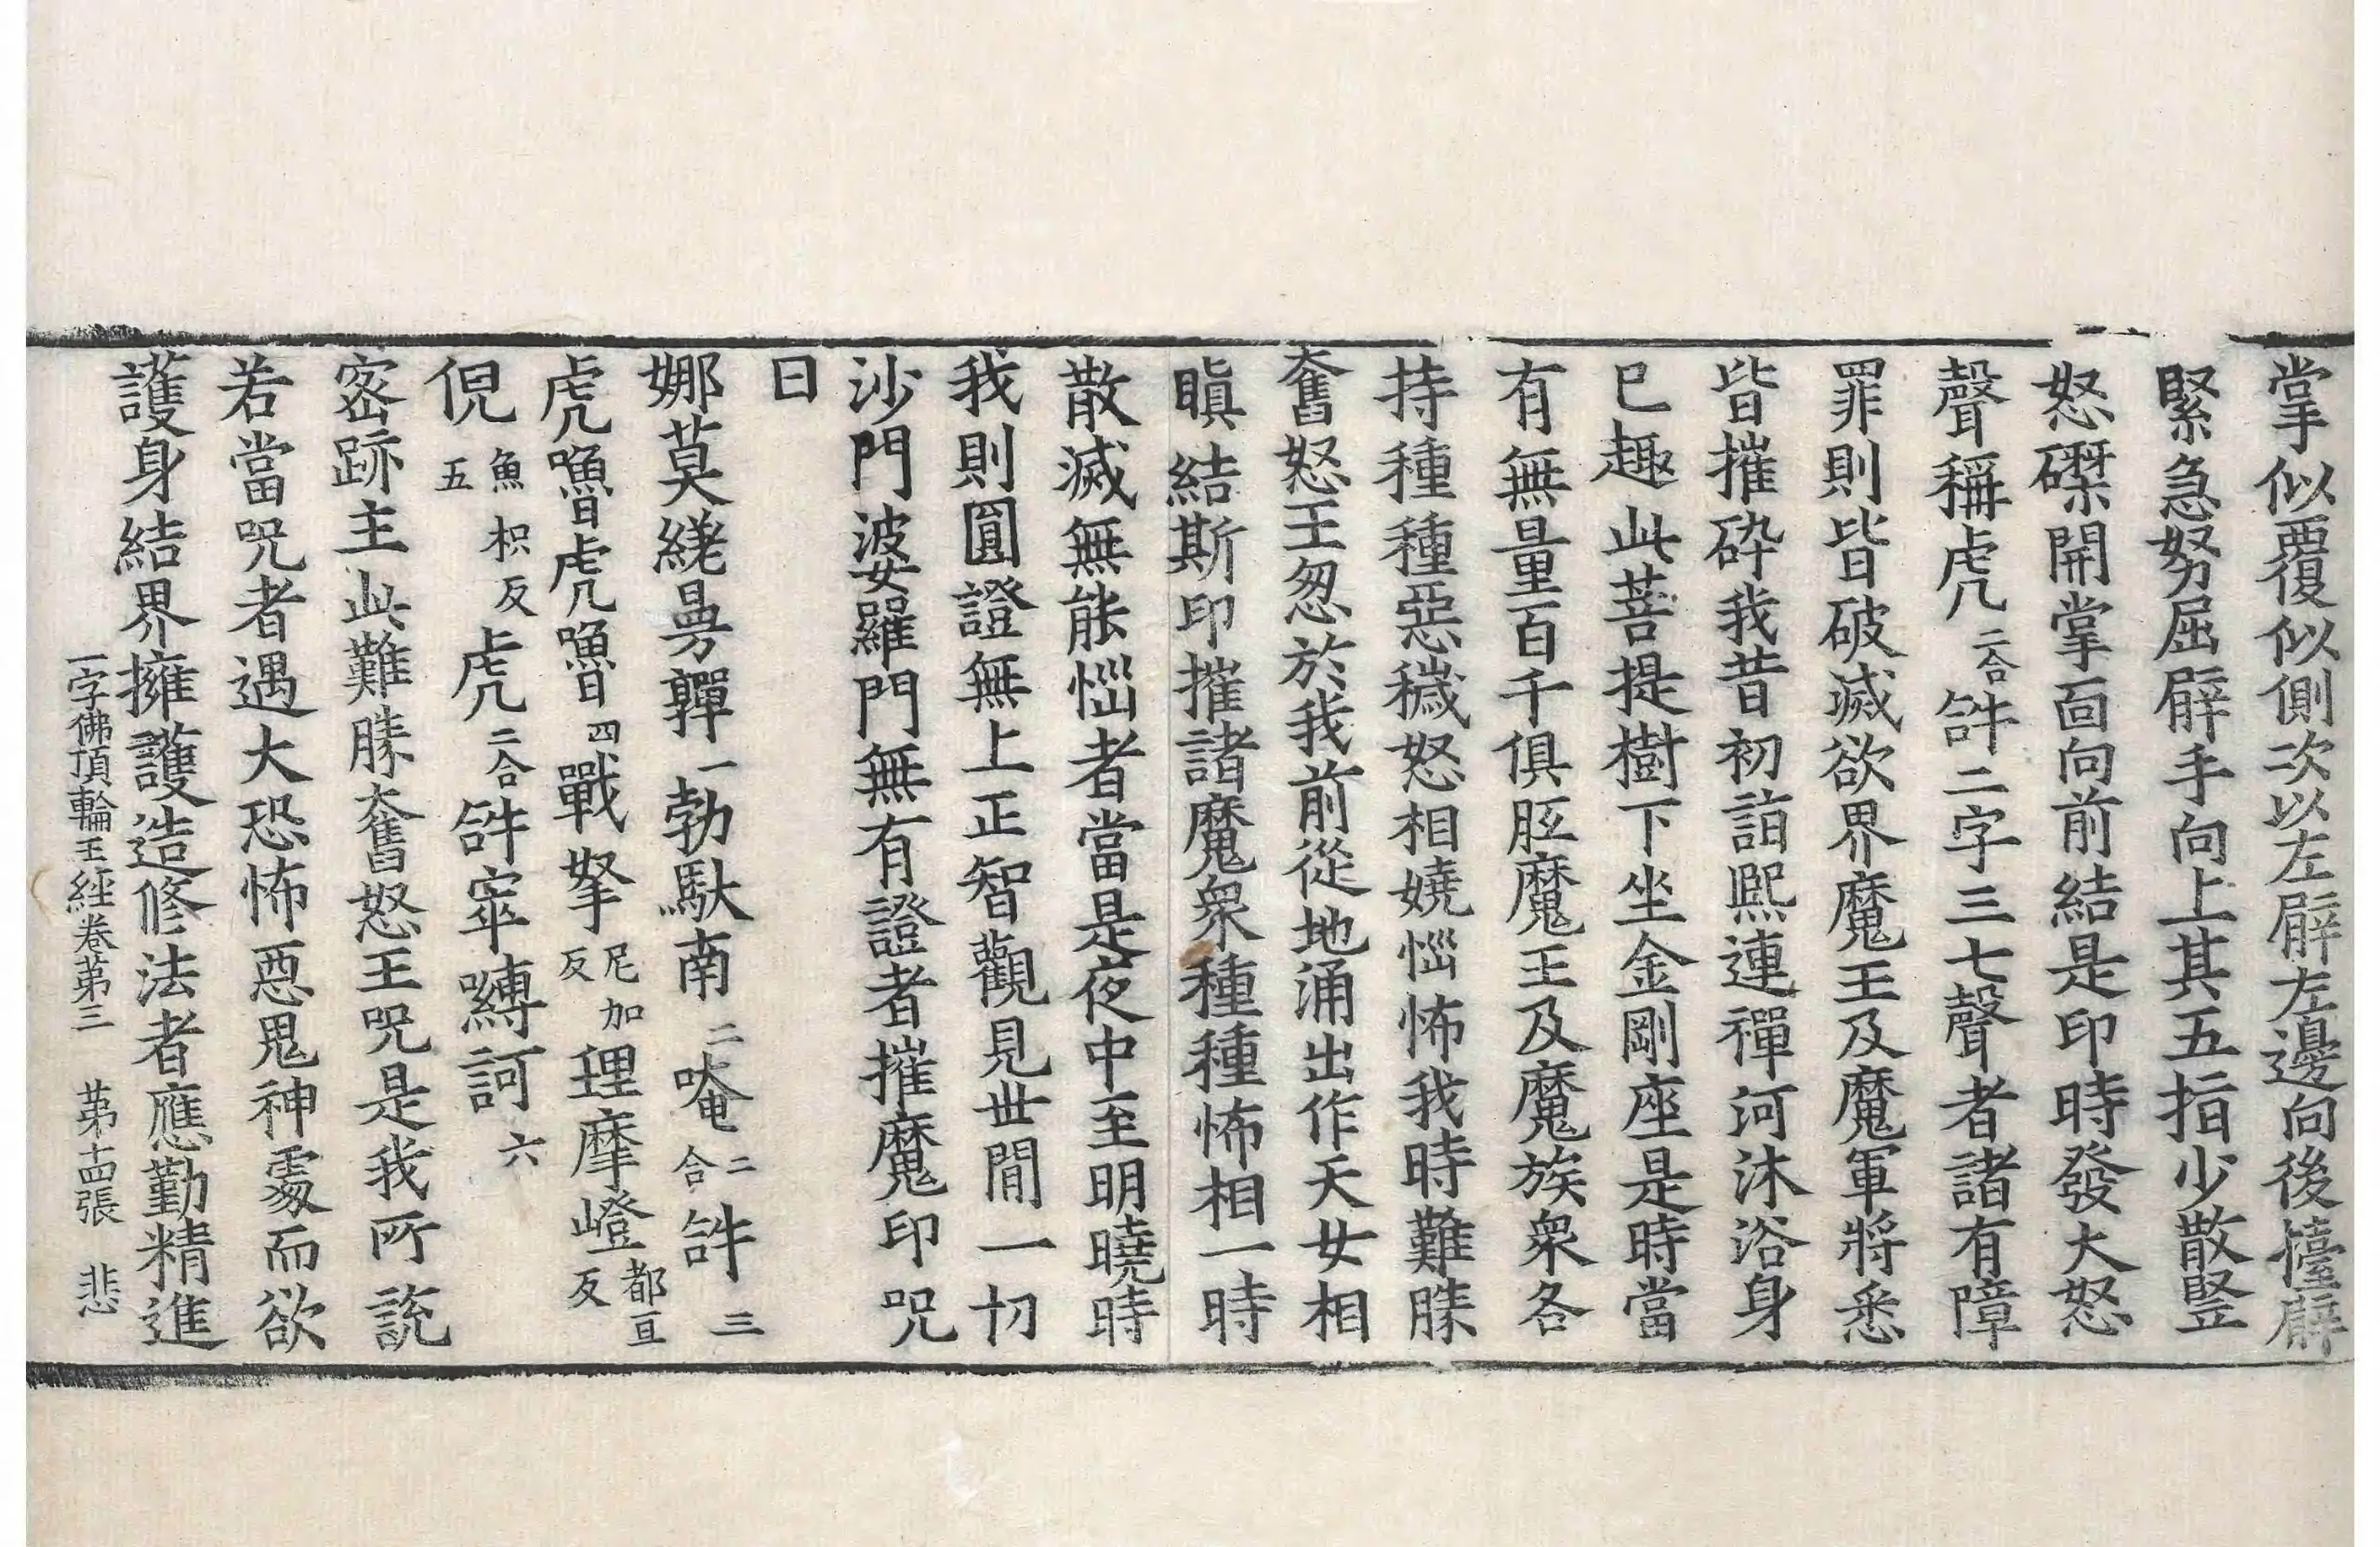 掌似覆似側次以左臂左邊向後擡臂
緊急努屈臂手向上其五指少散竪
怒磔開掌面向前結是印時發大怒
聲稱虎二合𤙖二字三七聲者諸有障
罪則皆破滅欲界魔王及魔軍將悉
皆摧碎我昔初詣熈連禪河沐浴身
已趣此菩提樹下坐金剛座是時當
有無量百千俱胝魔王及魔族衆各
持種種惡穢怒相嬈惱怖我時難勝
奮怒王忽於我前從地涌出作天女相
瞋結斯印摧諸魔衆種種怖相一時
散滅無能惱者當是夜中至明曉時
我則圓證無上正智觀見世間一切
沙門波婆羅門無有證者摧魔印咒
曰
娜莫縒曼嚲一勃馱南二唵二合𤙖三
虎嚕虎嚕四戰拏尼加反理摩嶝都亘反
倪魚枳反五虎二合𤙖窣嚩訶六
密跡主此難勝奮怒王咒是我所説
若當咒者遇大恐怖惡鬼神處而欲
護身結界擁護造修法者應勤精進
一字佛頂輪王經卷第三 第十四張 悲